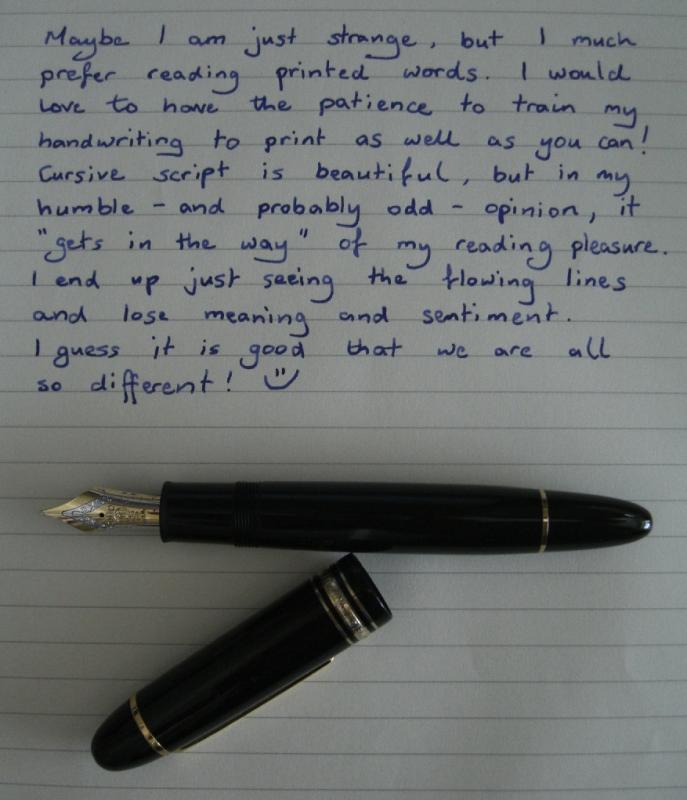 Maybe I am just strange, but I much
prefer reading printed words. I would
love to have the patience to train my
handwriting to print as well as you can!
Cursive script is beautiful, but in my
humble - and probably odd - opinion, it
"gets in the way" of my reading pleasure.
I end up just seeing the flowing lines
and lose meaning and sentiment.
I guess it is good that we are all
so different!